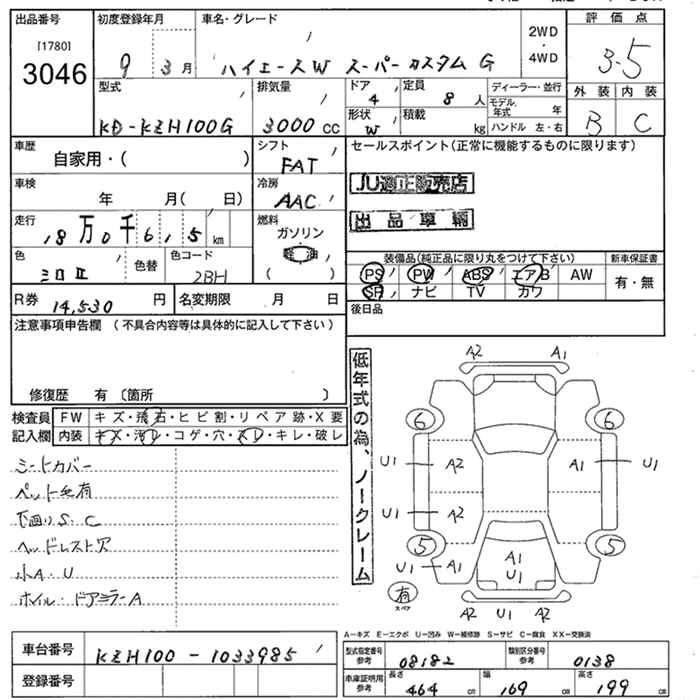 出品番号
[1780]
3046
初度登録年月
9 3月
車名・グレード
ハイエースW スーパーカスタム G
2WD
・
4WD
評価点
3.5
外装 内装
B C
型式
KD-KZH100G
排気量
3000 CC
ドア
4
定員
8人
形状
W
積載
kg
ディーラー・並行
モデル年式 年
ハンドル 左・右
車歴
自家用・( )
シフト
FAT
車検
年 月( 日)
冷房
AAC
走行
18万0千6,5 km
燃料
ガソリン
軽油
( )
色
色替
色コード
2BH
R券 14,530 円
名変期限 月 日
セールスポイント(正常に機能するものに限ります)
JU適正販売店
出品車輌
装備品(純正品に限り丸をつけて下さい)
新車保証書
PS PW ABS エアB AW
SR ナビ TV カワ
有・無
後日品
注意事項申告欄 (不具合内容等は具体的に記入して下さい)
修復歴 有 〔箇所 〕
検査員記入欄
FW キズ・飛石・ヒビ割・リペア跡・X要
内装 キズ・汚レ・コゲ・穴・スレ・キレ・破レ
シートカバー
ペット毛有
下廻りS.C
ヘッドレスト穴
小A・U
ホイル・ドアミラーA
低年式の為、ノークレーム
A2 A1
6 6
U1 A2 A1 U1
U1 A2
5 5
U1 A1 A1
U1
有
スペア
A2 U1 A2
A-キズ E-エクボ U-凹み W-補修跡 S-サビ C-腐食 XX-交換済
車台番号
KZH100-1033985
登録番号
型式指定番号
参考
08182
類別区分番号
参考
0138
車庫証明用
参考
長さ
464 cm
幅
169 cm
高さ
199 cm